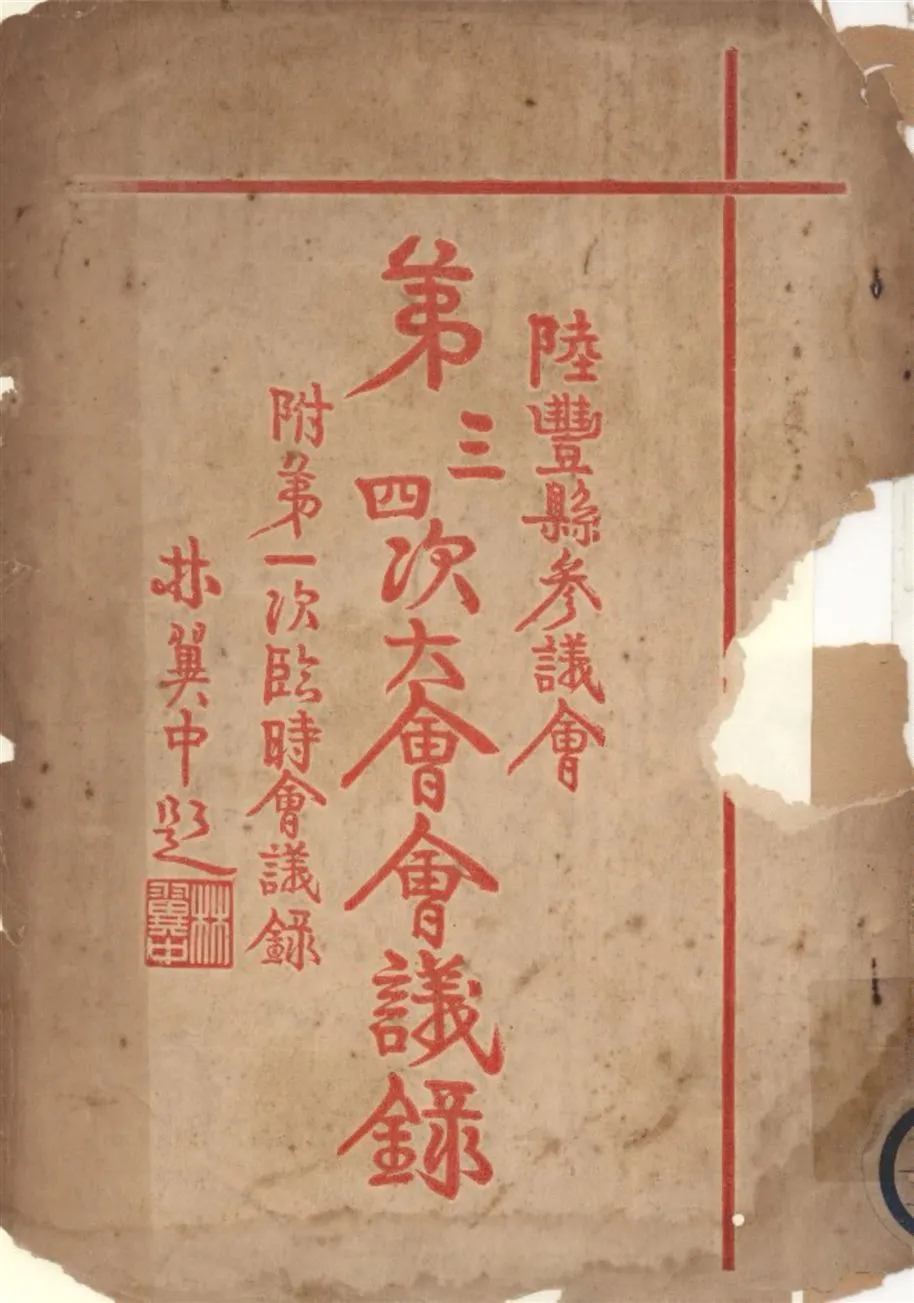 陸豐縣參議會
第三四次大會會議錄
附第一次臨時會議錄
林翼中題
林翼中